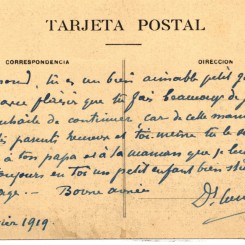 TARJETA POSTAL
CORRESPONDENCIA DIRECCION
mond, tu es un bien aimable petit
avec plaisir que tu fais beaucoup de
souhaite de continuer, car de cette
parents heureux et toi-même tu le
à ton papa et à ta maman que je leur
toujours en toi un petit enfant bien
sage. — Bonne année
1919.